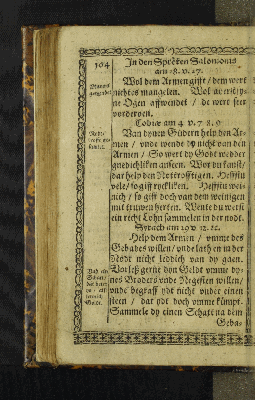 104
In den Spröken Salomonis
am 28. v. 27.
Wol dem Armen gifft / dem wert
nichtes mangelen. Wol averst sy-
ne Ogen affwendet / de wert seer
vorderven.
Tobiæ am 4 v. 7 8. 9
Van dynen Güdern help den Ar-
men / unde wende dy nicht van den
Armen / So wert dy Godt wedder
gnedichliken anseen. Wor du kanst /
dar help den Nottrofftigen. Heffstu
vele / so giff ryckliken. Heffstu wei-
nich / so giff doch van dem weinigen
mit truwen herten. Wente du werst
ein recht Lohn sammelen in der nodt.
Syrach am 29 v 12. &c.
Help dem Armen / umme des
Gebades willen / unde lath en in der
Nodt nicht leddich van dy gaen.
Vorleß gerne dyn Geldt umme dy-
nes Broders unde Negesten willen /
unde begraff ydt nicht under einen
steen / dar ydt doch umme kümpt.
Sammele dy einen Schat na dem
Geba-